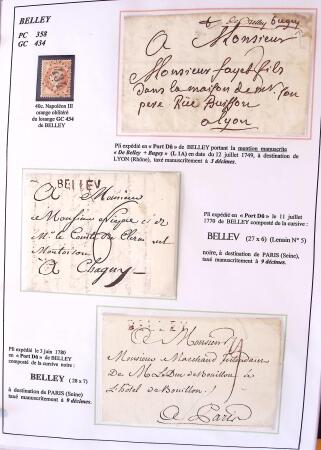 BELLEY
PC 358
GC 434
40c. Napoléon III
orange oblitéré
du losange GC 434
de BELLEY
De Belley
A Monsieur
Monsieur fayet fils
dans la maison de
pere Rue Buisson
a Lyon
Pli expédié en « Port Dû » de BELLEY portant la mention manuscrite
« De Belley + Bugey » (L 1A) en date du 12 juillet 1749, à destination de
LYON (Rhône), taxé manuscritement à 3 décimes.
BELLEV
A Monsieur
Monsieur et
Mr le Comte de
A
Pli expédié en « Port Dû » le 11 juillet
1770 de BELLEY composté de la cursive
BELLEV (27 x 6) (Lenain N° 5)
noire, à destination de PARIS (Seine),
taxé manuscritement à 9 décimes.
Pli expédié le 3 juin 1780
en « Port Dû » de BELLEY
composté de la cursive noire :
BELLEY (28 x 7)
à destination de PARIS (Seine)
taxé manuscritement à 9 décimes.
A Monsieur
Monsieur Marchand
De M. Le Duc de Bouillon à
L'hôtel de Bouillon !
A Paris